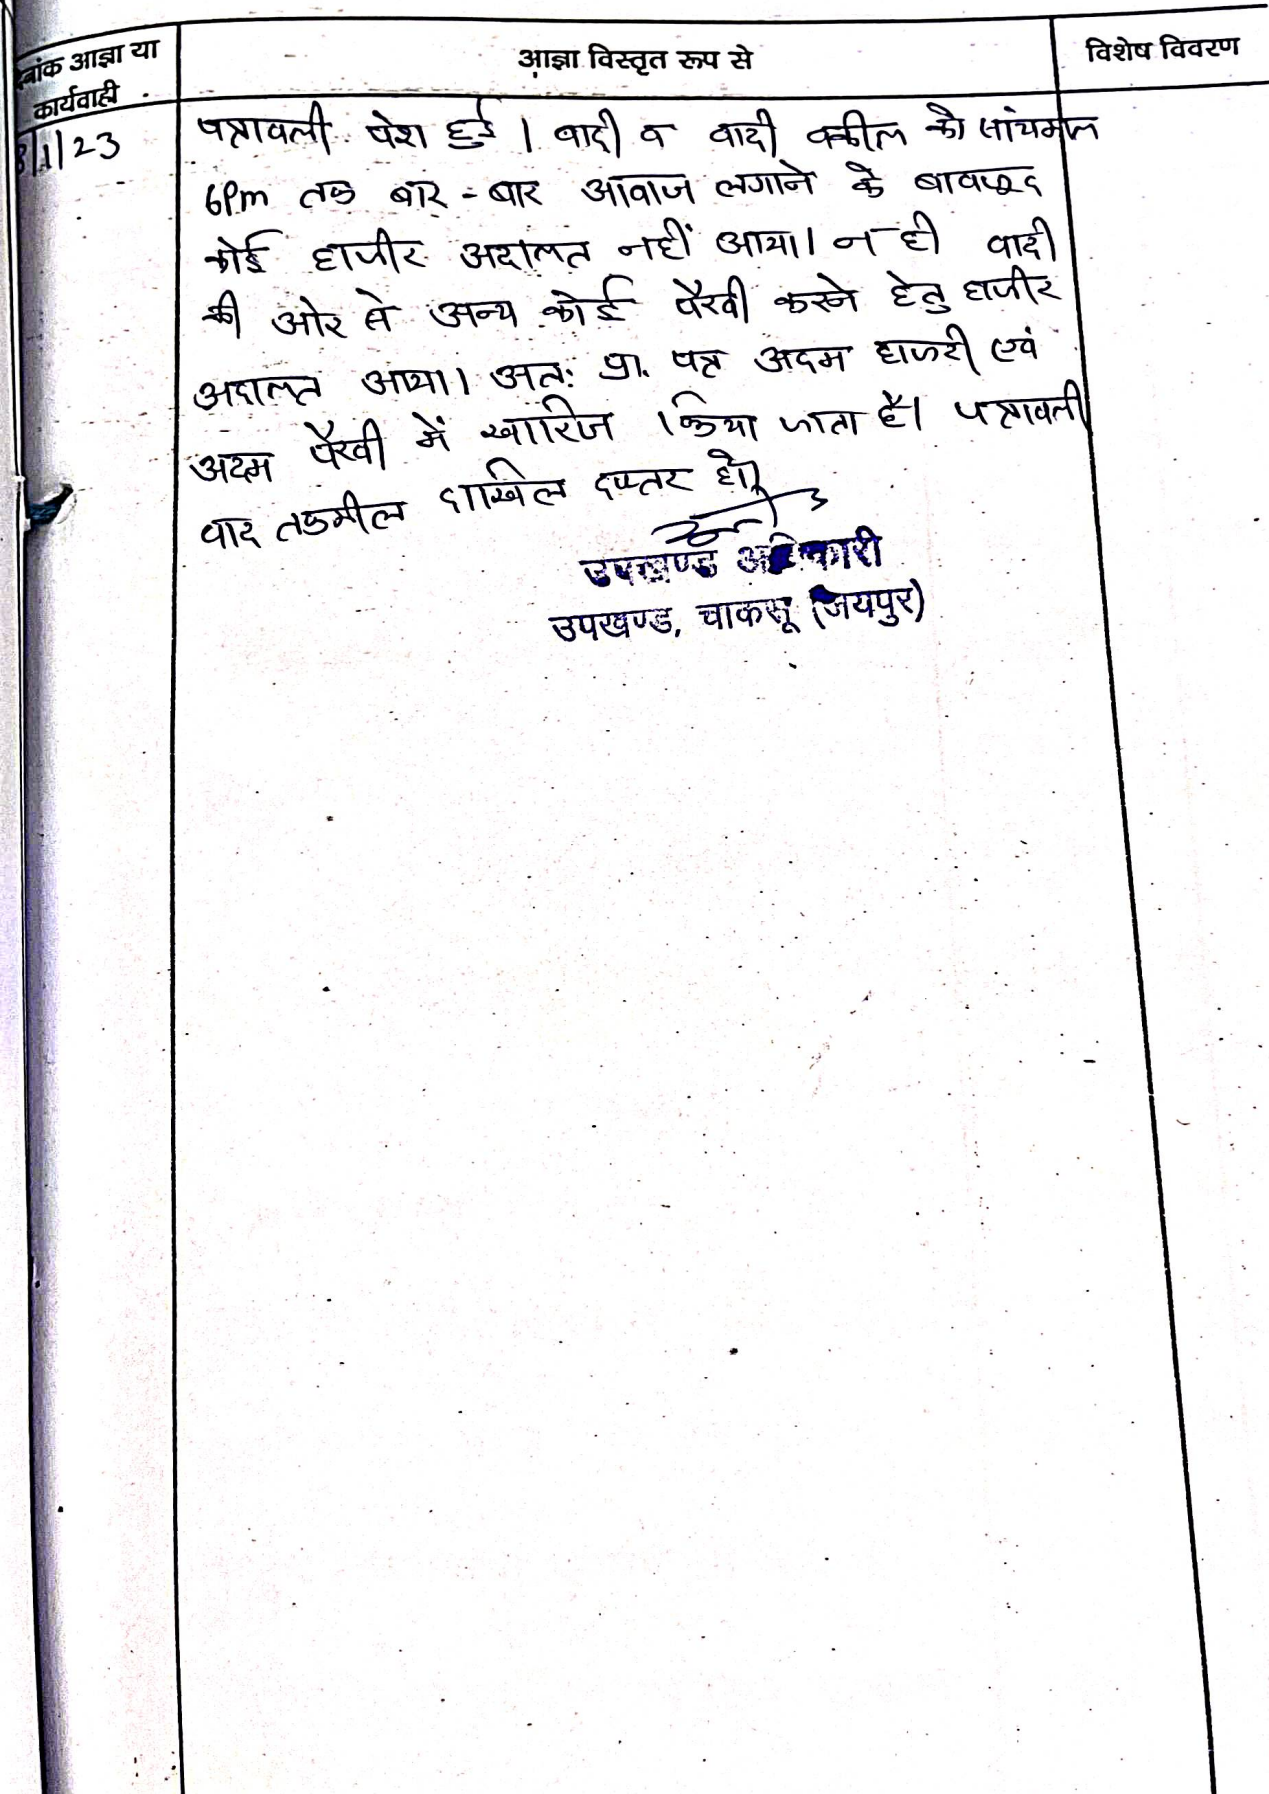 आज्ञा या
कार्यवाही
आज्ञा विस्तृत रूप से
विशेष विवरण
/1/23
पत्रावली पेश हुई। वादी व वादी वकील को सांयकाल
6Pm तक बार-बार आवाज लगाने के बावजूद
कोई हाजीर अदालत नहीं आया। न ही वादी
की ओर से अन्य कोई पैरवी करने हेतु हाजीर
अदालत आया। अतः प्रा. पत्र अदम हाजरी एवं
अदम पैरवी में खारिज किया जाता है। पत्रावली
वाद तकमील दाखिल दफ्तर हो।
उपखण्ड अधिकारी
उपखण्ड, चाकसू (जयपुर)